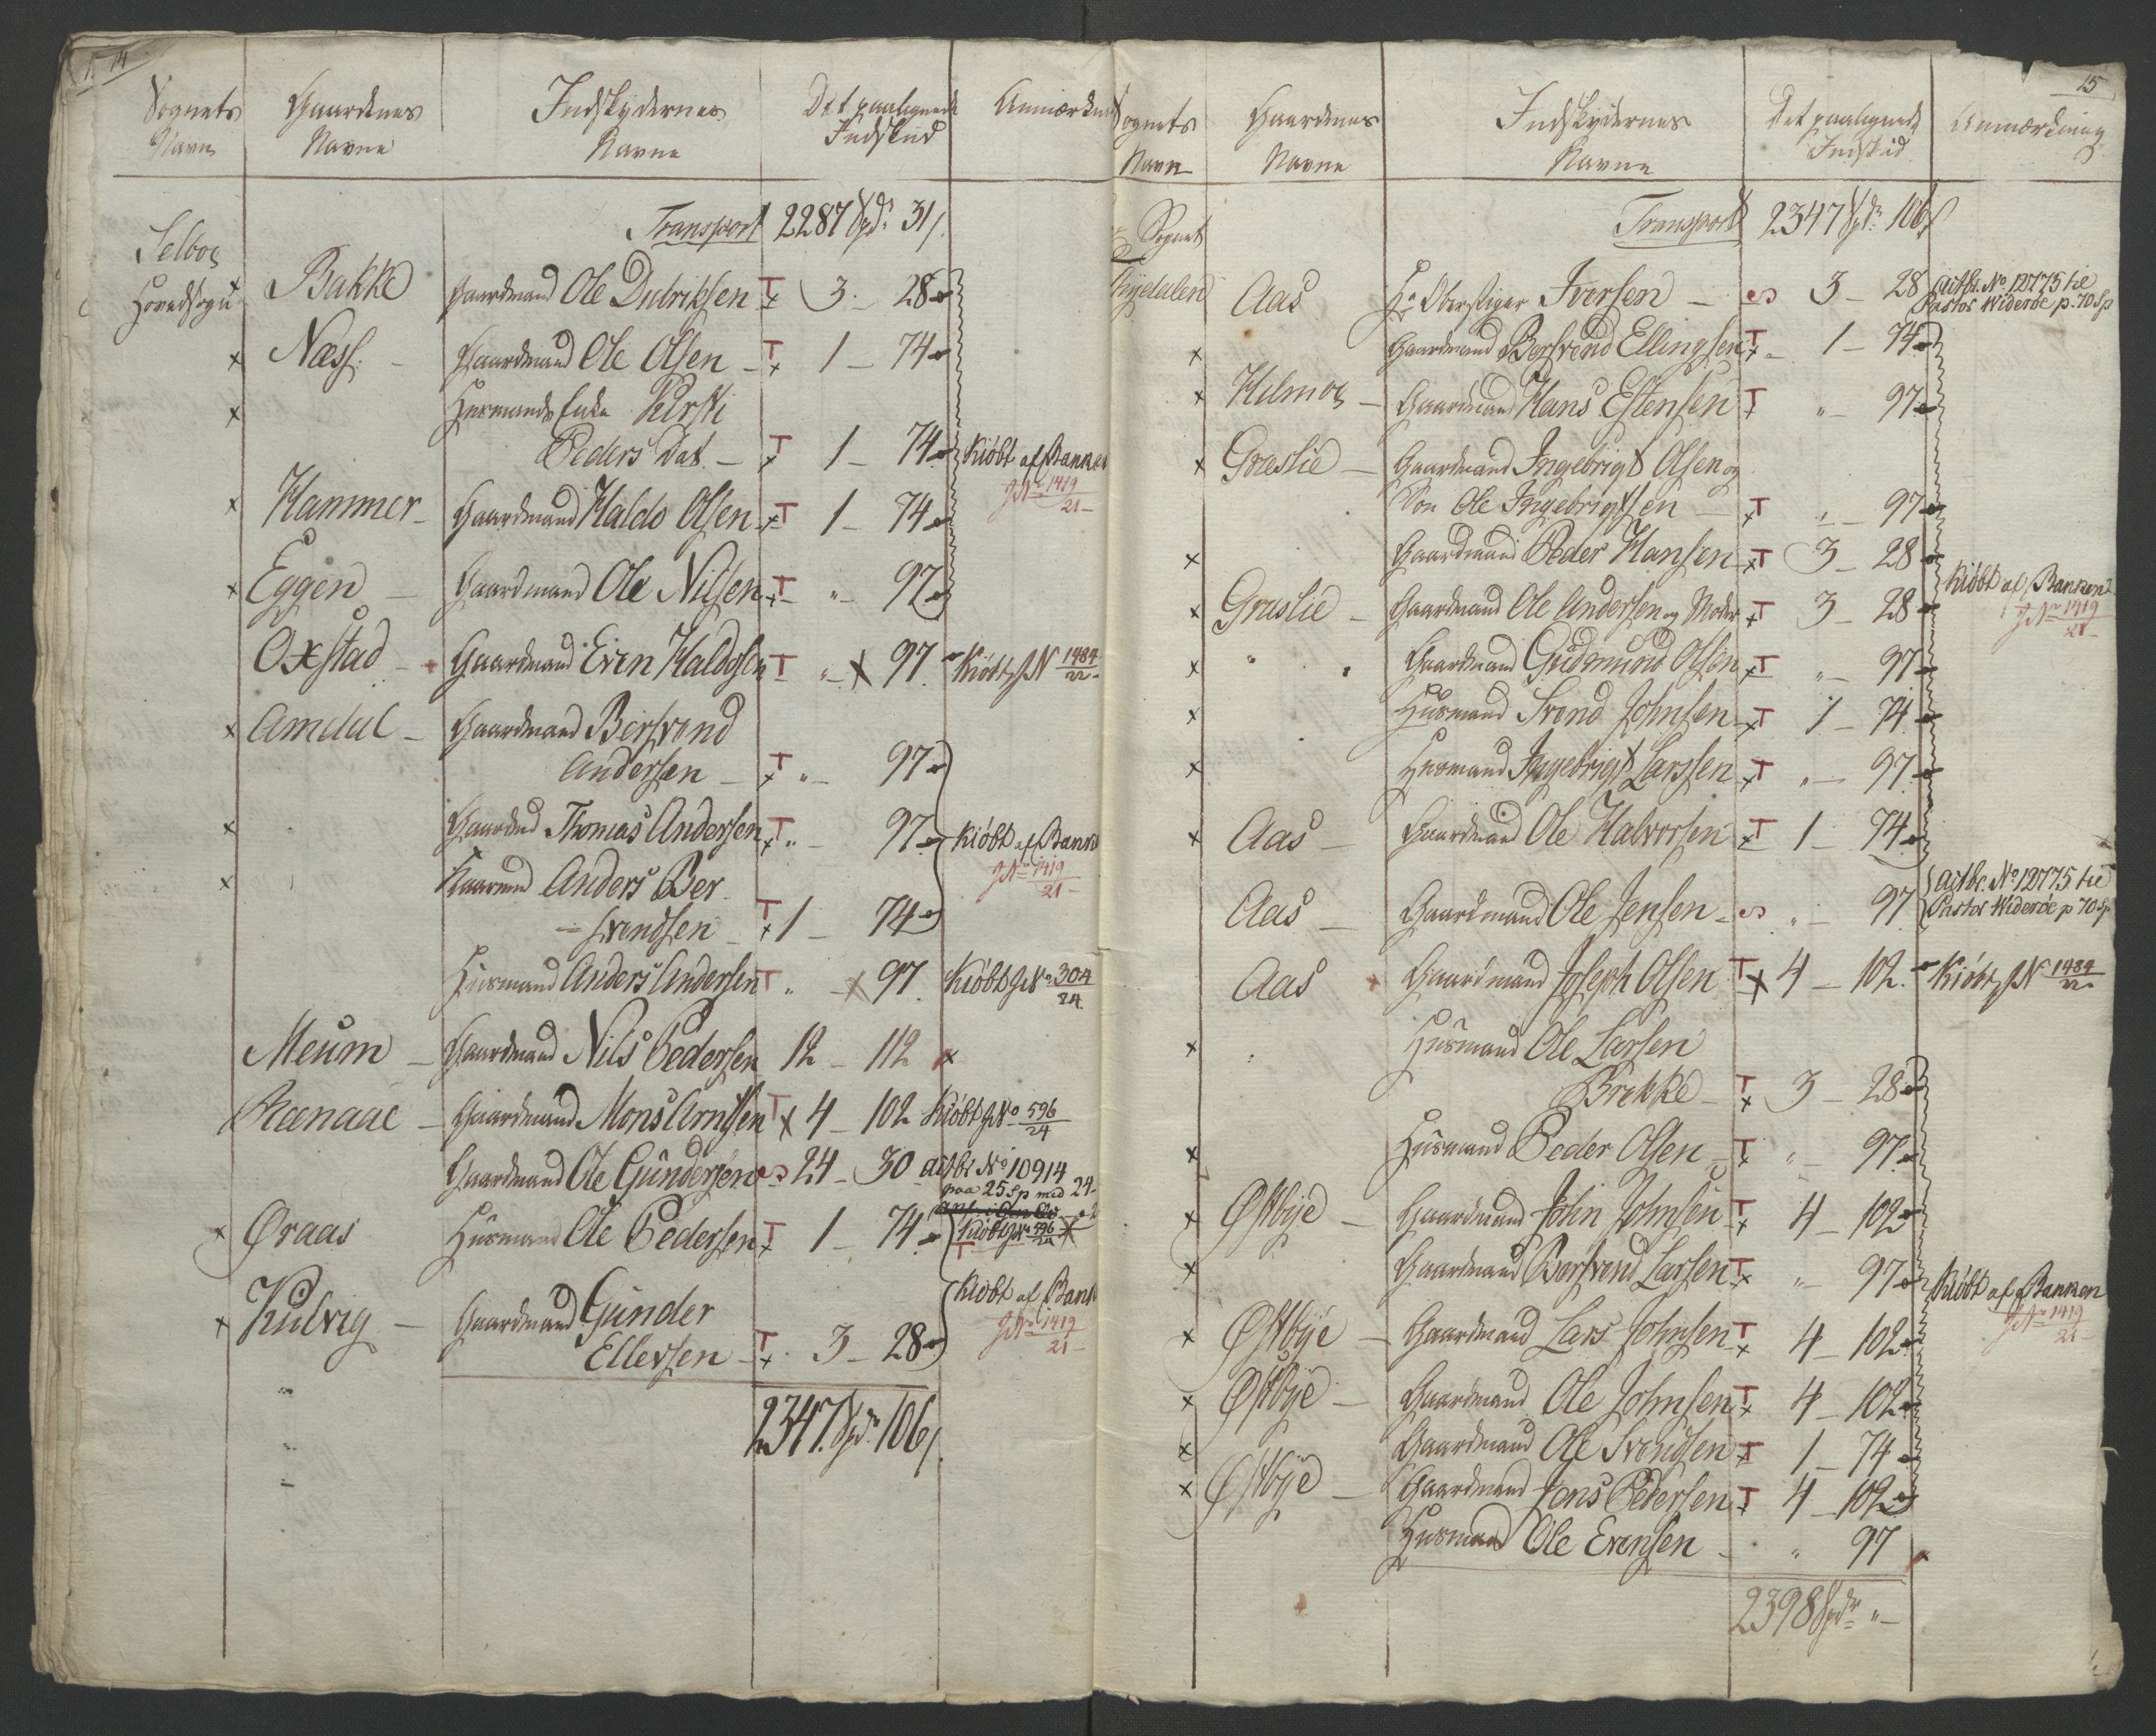 14
Sognets Gaardenes Indskydernes Det paalignede Anmærkn
Navn Navne Navne Indskud
Transport 2287 Spd. 31 s.
Selboe
Hovedsogn x Bakke Gaardmand Ole Didriksen T x 3 - 28
x Næss - Gaardmand Ole Olsen - T x 1 - 74
x Husmands Enke Kirsti
Peders Dat. - T x 1 - 74 Kiøbt af Banken
JN 1419/21 -
x Hammer - Gaardmand Haldo Olsen T x 1 - 74
x Eggen - Gaardmand Ole Nilsen T x " - 97
Oxstad - Gaardmand Even Haldosen T " - x 97 Kiøbt JN 1484/22 -
x Amdal - Gaardmand Bersvend
Andersen - T x " - 97
x Gaardmd Thomas Andersen T x " - 97 Kiøbt af Bank
JN 1419/21 -
x Kaarmd Anders Ber-
- svendsen - T x 1 - 74
Husmand Anders Andersen T " - x 97 Kiøbt JNo 304/24
Meum - Gaardmand Nils Pedersen 12 - 112 x
Rænaae - Gaardmand Mons Arntsen T x 4 - 102 Kiøbt JNo 596/24
Gaardmand Ole Gundersen 24 - 30 actbr No 10914
paa 25 Sp med 24 -
x Øraas Husmand Ole Pedersen T x 1 - 74 Kiøbt JN 596/24 x
T
Kiøbt af Bank
x Kulvig - Gaardmand Gunder JN 1419/21 -
Ellevsen - T x 3 - 28
2347 Spd. 106 s.
15
Sognets Gaardenes Indskydernes Det paalignede Anmærkning
Navn Navne Navne Indskud
Transport 2347 Spd. 106 s
Sognet
Tydalen Aas Hr Oberstiger Iversen - 3 - 28 actbr. No 12775 til
Pastor Widerøe p. 70 Sp
x Gaardmand Bersvend Ellingsen T x - 1 - 74
x Hilmoe - Gaardmand Hans Estensen T x " - 97
x Græslie - Gaardmand Ingebrigt Olsen og
Søn Ole Ingebrigtsen - T x " - 97
x Gaardmand Peder Hansen T x 3 - 28 Kiøbt af Banken
x Græslie - Gaardmand Ole Andersen og Moder T x 3 - 28 JN 1419/21 -
x " Gaardmand Gudmund Olsen T x " - 97
x Husmand Svend Johnsen T x 1 - 74
x Husmand Ingebrigt Larssen T x " - 97
x Aas - Gaardmand Ole Halvorsen T x 1 - 74
Aas - Gaardmand Ole Jensen - " - 97 actbr. No 12775 til
Pastor Widerøe p 70 Sp
Aas Gaardmand Joseph Olsen T x 4 - 102 Kiøbt JN 1484/22 -
x Husmand Ole Larsen
Brekke - T x 3 - 28
x Husmand Peder Olsen - T x " - 97
x Østbye - Gaardmand John Johnsen T x 4 - 102
x Gaardmand Bersvend Larsen T x " - 97 Kiøbt af Banken
x Østbye - Gaardmand Lars Johnsen T x 4 - 102 JN 1419/21 -
x Østbye - Gaardmand Ole Johnsen T x 4 - 102
x Gaardmand Ole Svendsen T x 1 - 74
x Østbye - Gaardmand Jens Pedersen T x 4 - 102
Husmand Ole Evensen - " 97 x
2398 Spdr " -